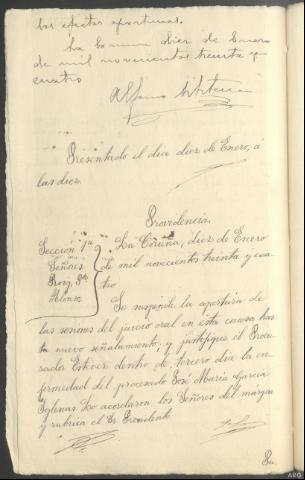 los efectos oportunos.
La Coruña diez de Enero
de mil novecientos treinta y
cuatro
Alfonso
Presentado el dia diez de Enero, á
las diez.
Providencia.
Sección 1ª
Señores.
Pte
La Coruña, diez de Enero
de mil novecientos treinta y cua-
tro
Se suspende la apertura de
las sesiones del juicio oral en esta causa has
ta nuevo señalamiento; y justifique el Procu
rador Estévez dentro de tercero dia la en
fermedad del procesado José Maria Garcia
Iglesias. Lo acordaron los Señores del márgen
y rubrica el Sr. Presidente
ARG